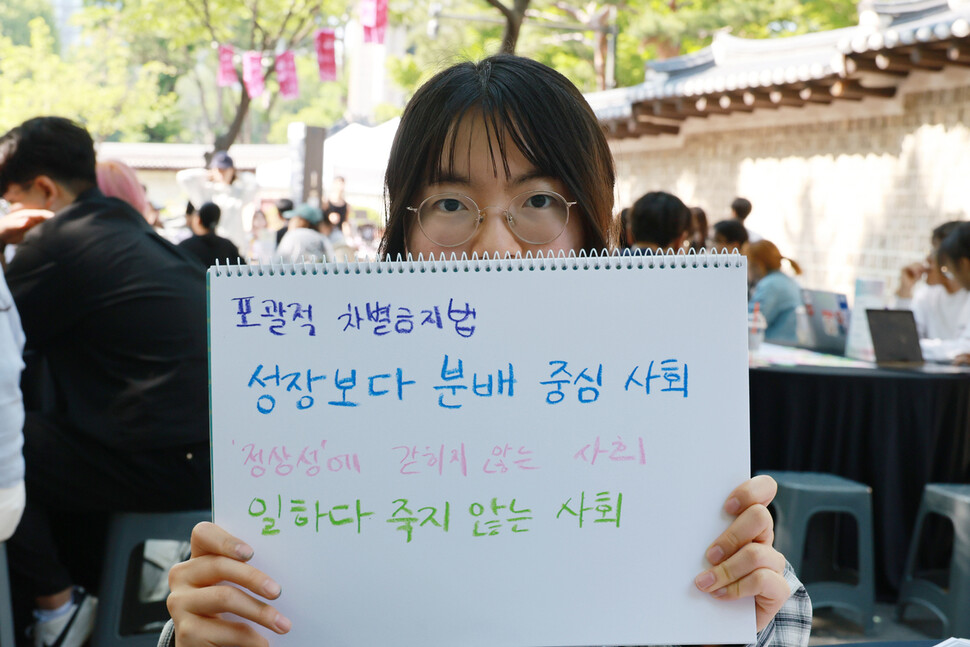 포괄적 차별금지법
성장보다 분배 중심 사회
'정상성'에 갇히지 않는 사회
일하다 죽지 않는 사회